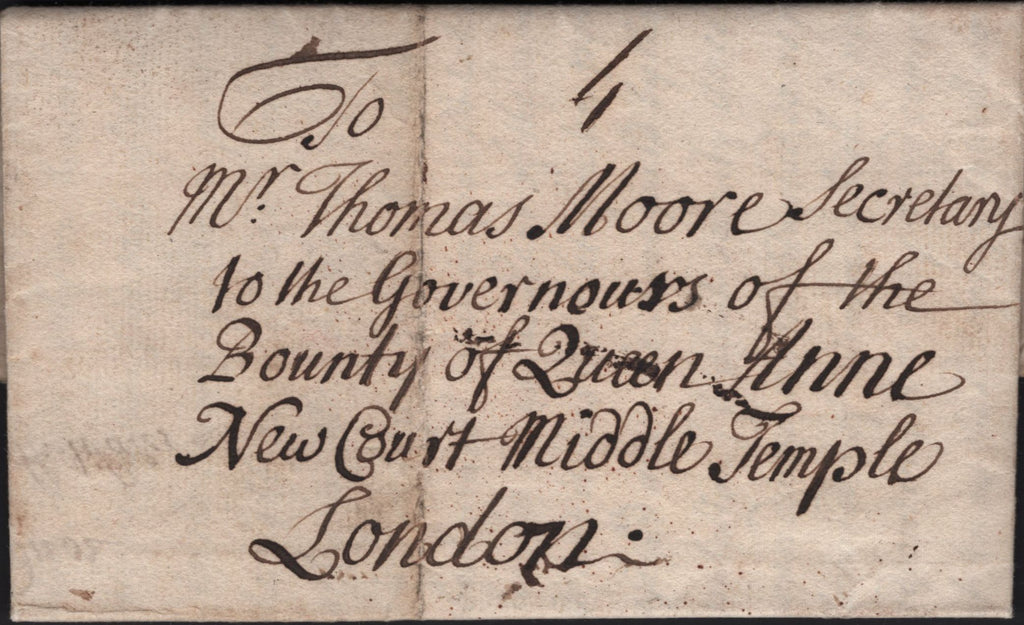 To 4
Mr. Thomas Moore Secretary
to the Governours of the
Bounty of Queen Anne
New Court Middle Temple
London.